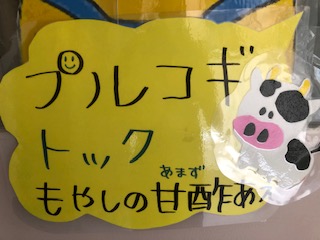 プルコギ
トック
あまず
もやしの甘酢あ